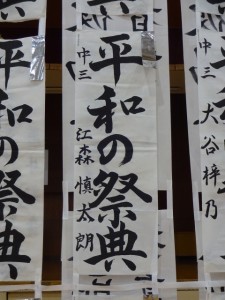 平和の祭典
中三
江森慎太朗
平和の祭典
中三
大谷梓乃